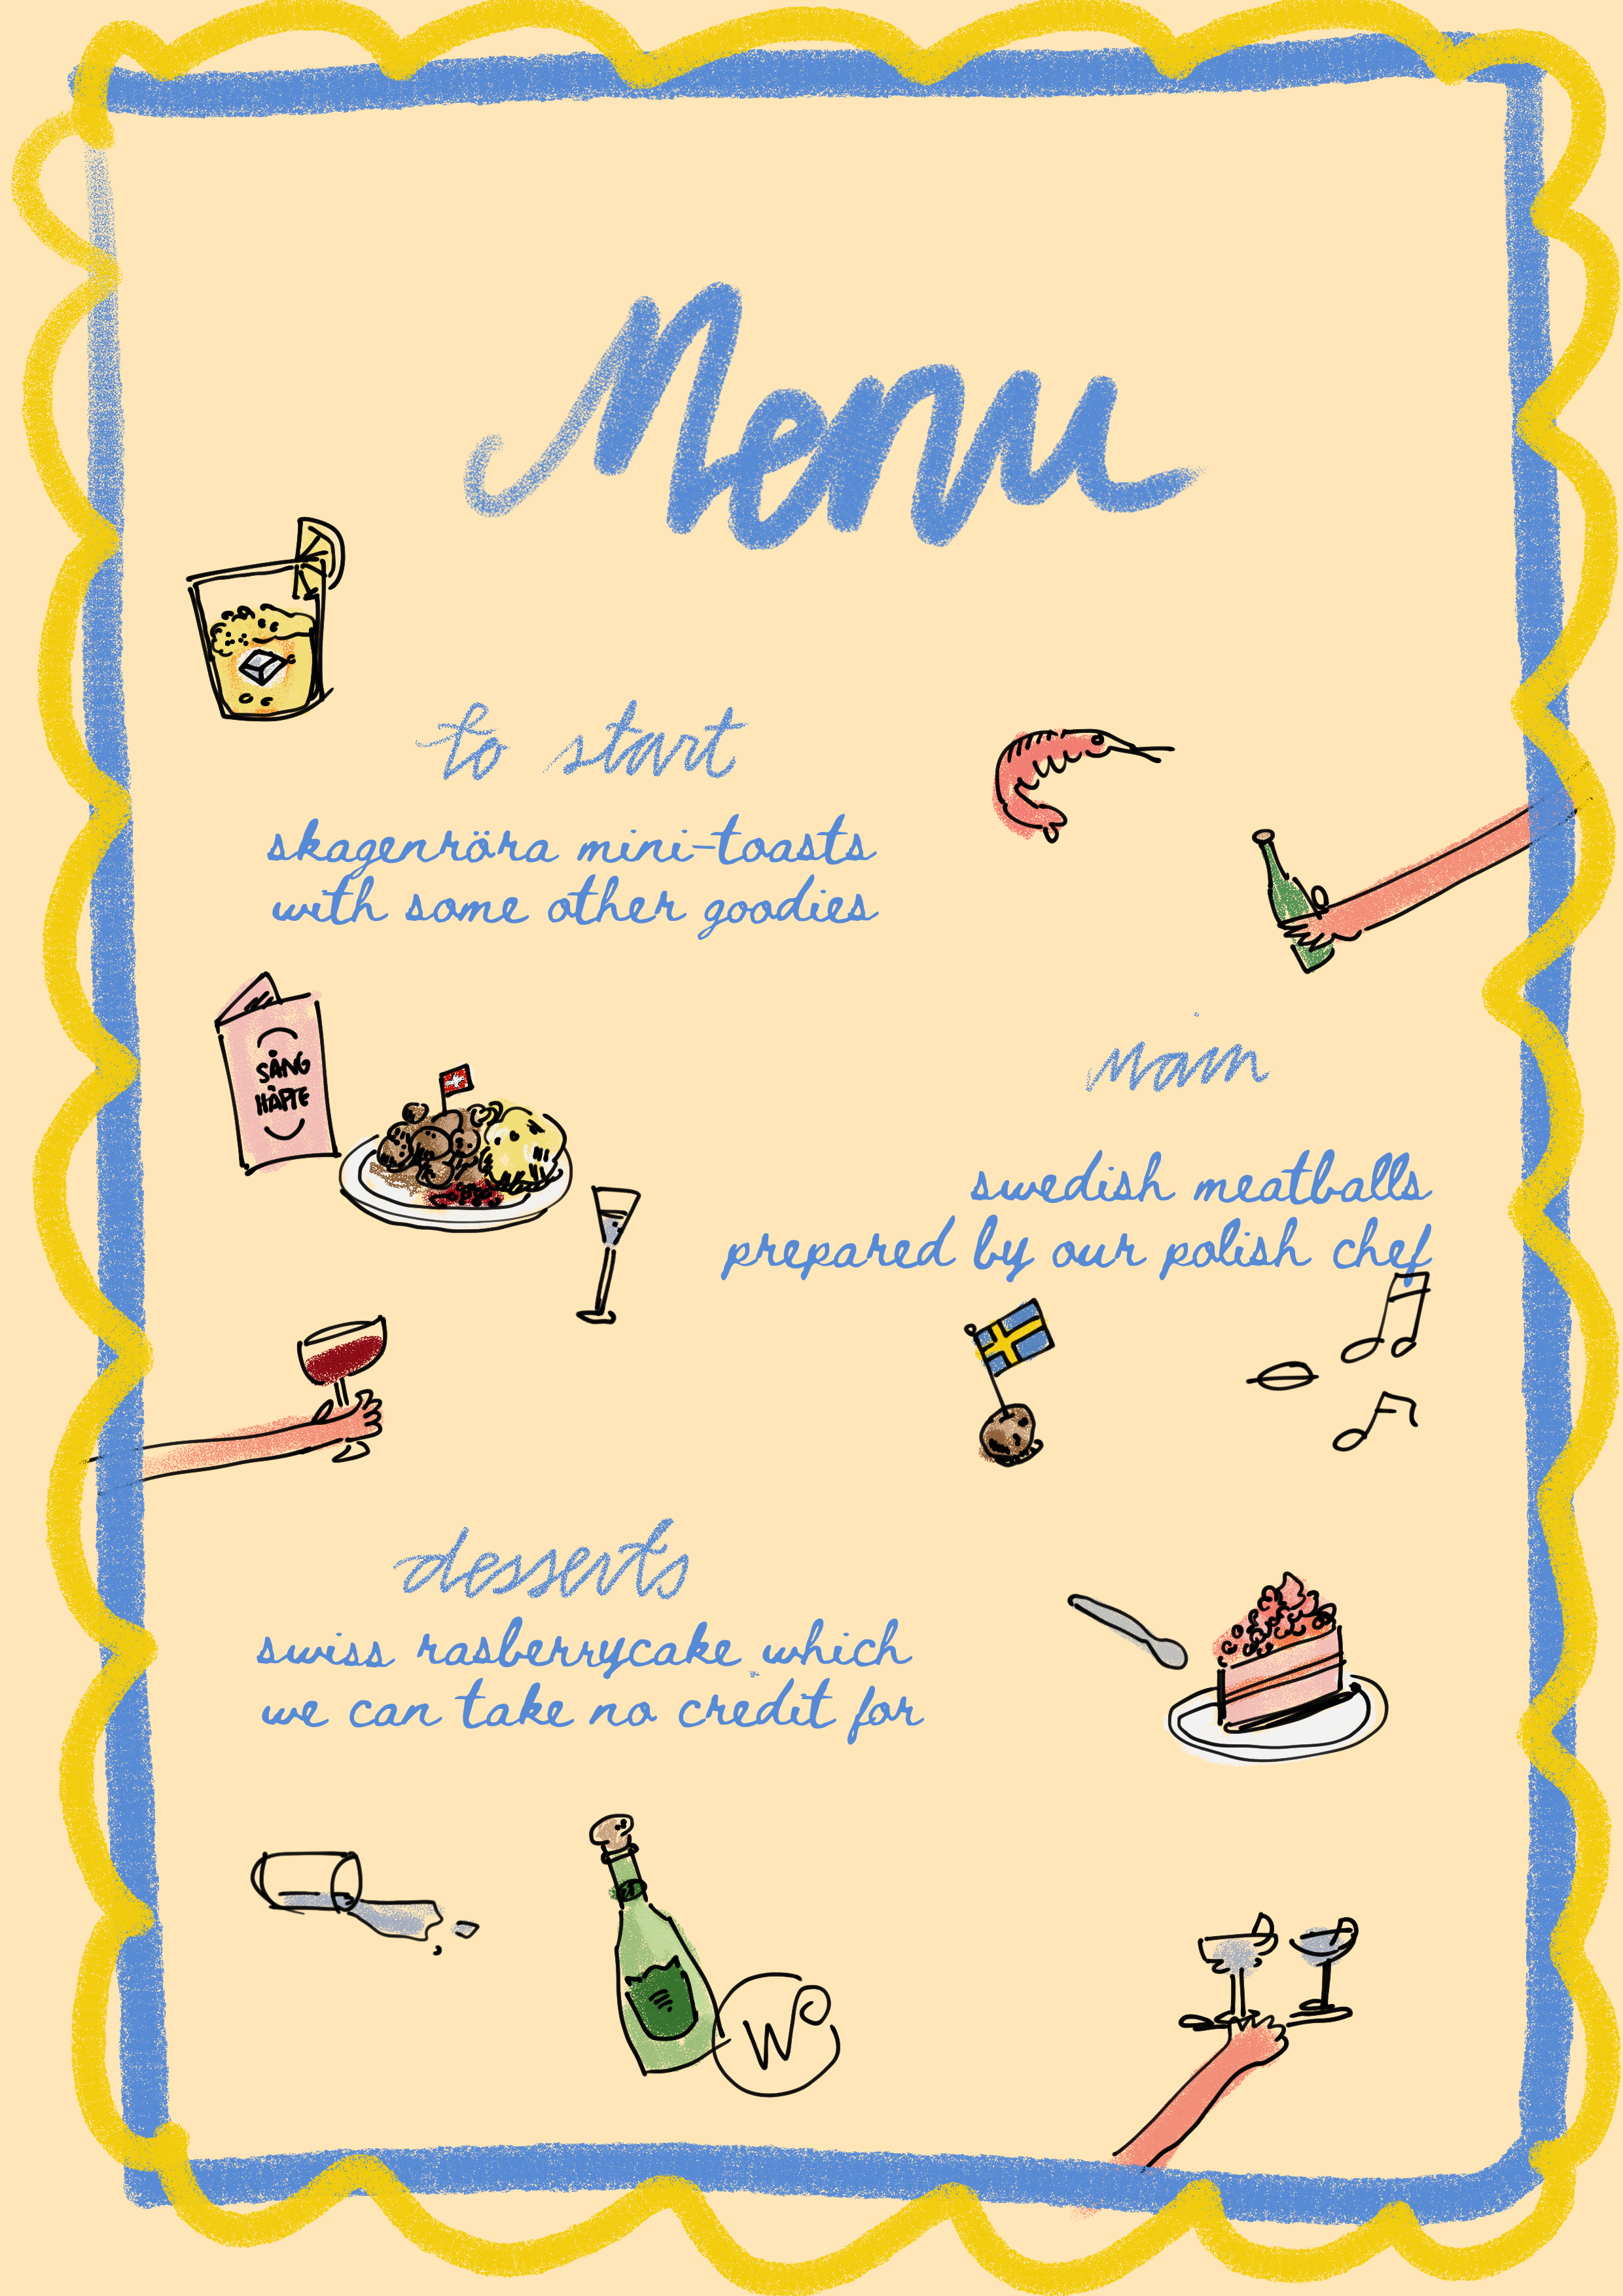 Menu
to start
skagenröra mini-toasts
with some other goodies
SÅNG
HÄFTE
main
swedish meatballs
prepared by our polish chef
desserts
swiss rasberrycake which
we can take no credit for
W